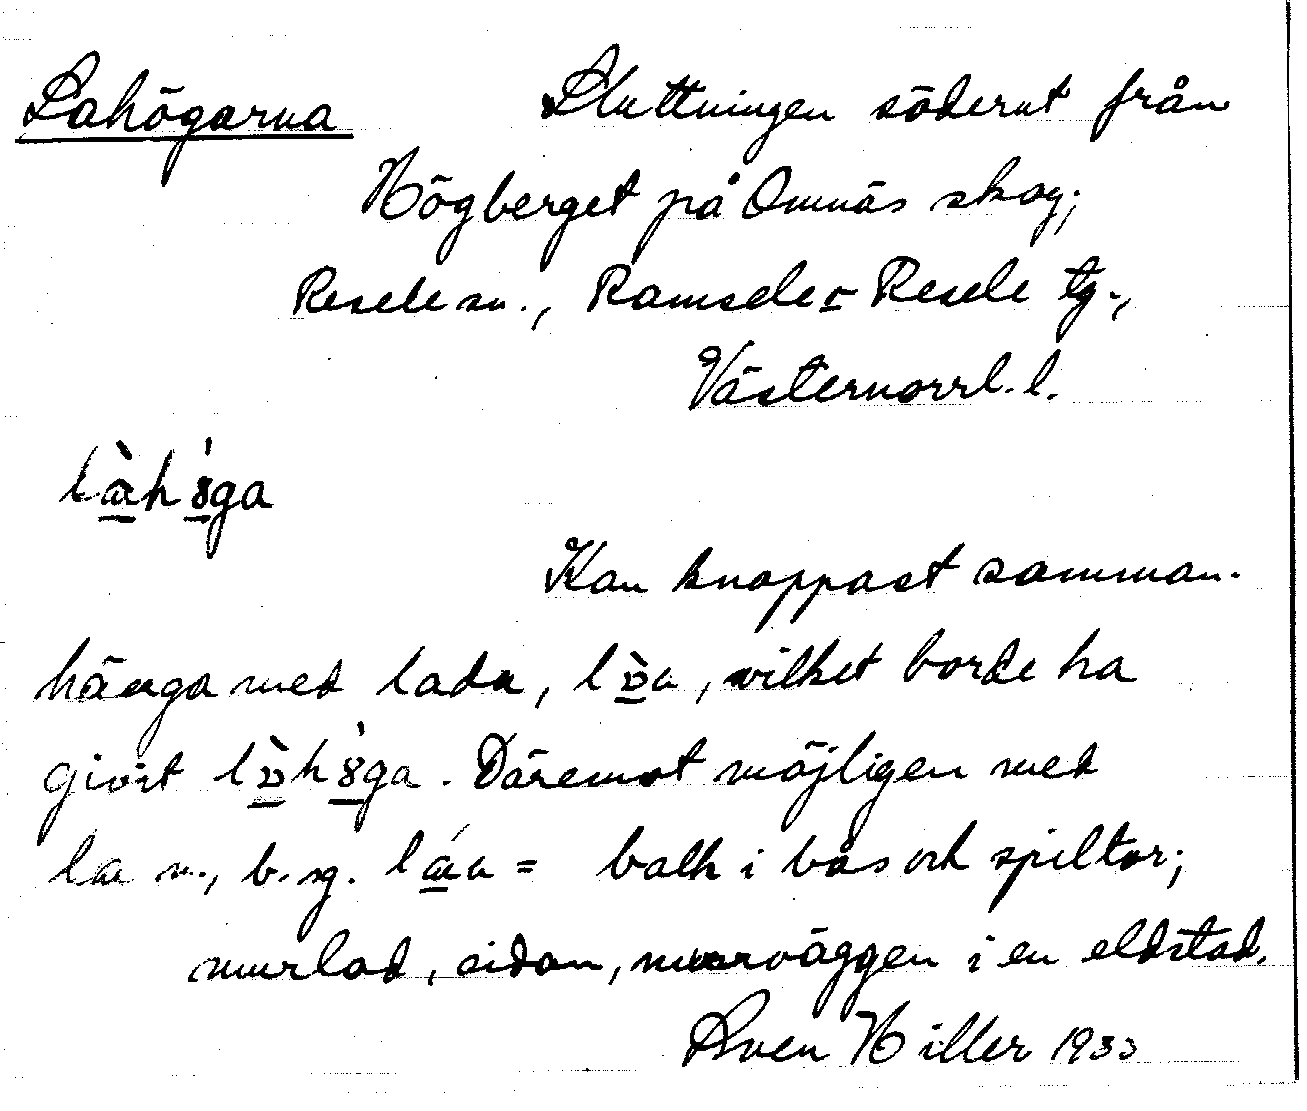 Lahögarna Sluttningen söderut från
Högberget på Omnäs skog;
Resele sn., Ramsele - Resele tg.,
Västernorrl. l.
Kan knappast samman-
hänga med lada, vilket borde ha
givit Däremot möjligen med
la n., b. sg. = balk i bås och spiltor;
murlad, sidan, murväggen i en eldstad.
Sven Hiller 1933